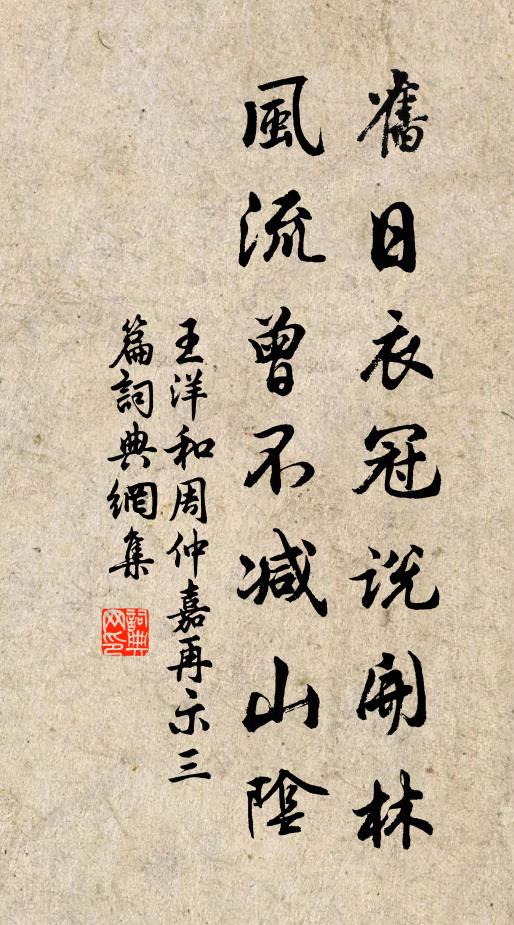 舊日衣冠說開林
風流曾不減山陰
王洋和周仲嘉再示三
篇詞典網集
詞典
网印